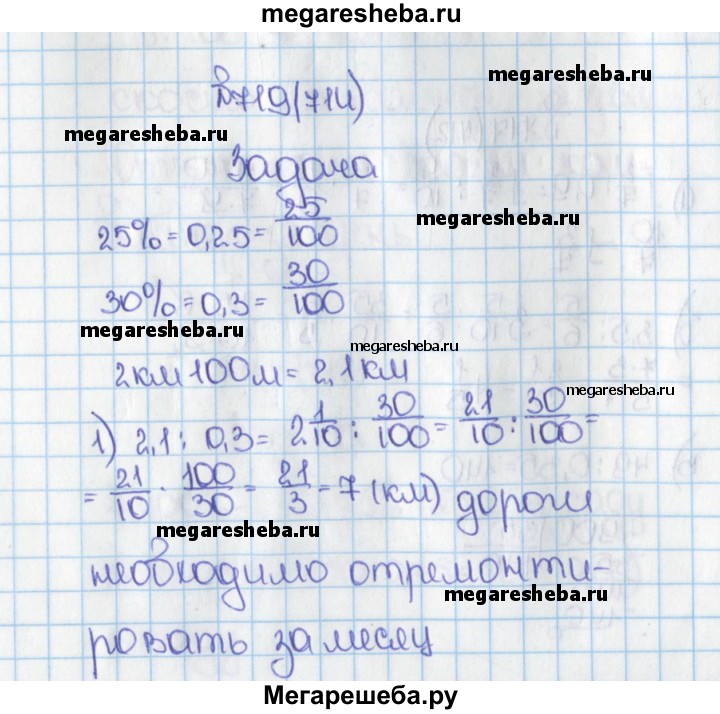 megaresheba.ru
megaresheba.ru
№719(714)
megaresheba.ru
Задача
25% = 0,25 = 25/100
megaresheba.ru
30% = 0,3 = 30/100
megaresheba.ru
megaresheba.ru
2км 100м = 2,1 км
megaresheba.ru
1) 2,1 : 0,3 = 2 1/10 : 30/100 = 21/10 : 30/100 =
= 21/10 · 100/30 = 21/3 = 7 (км) дороги
megaresheba.ru
необходимо отремонти-
megaresheba.ru
ровать за месяц
Мегарешеба.ру